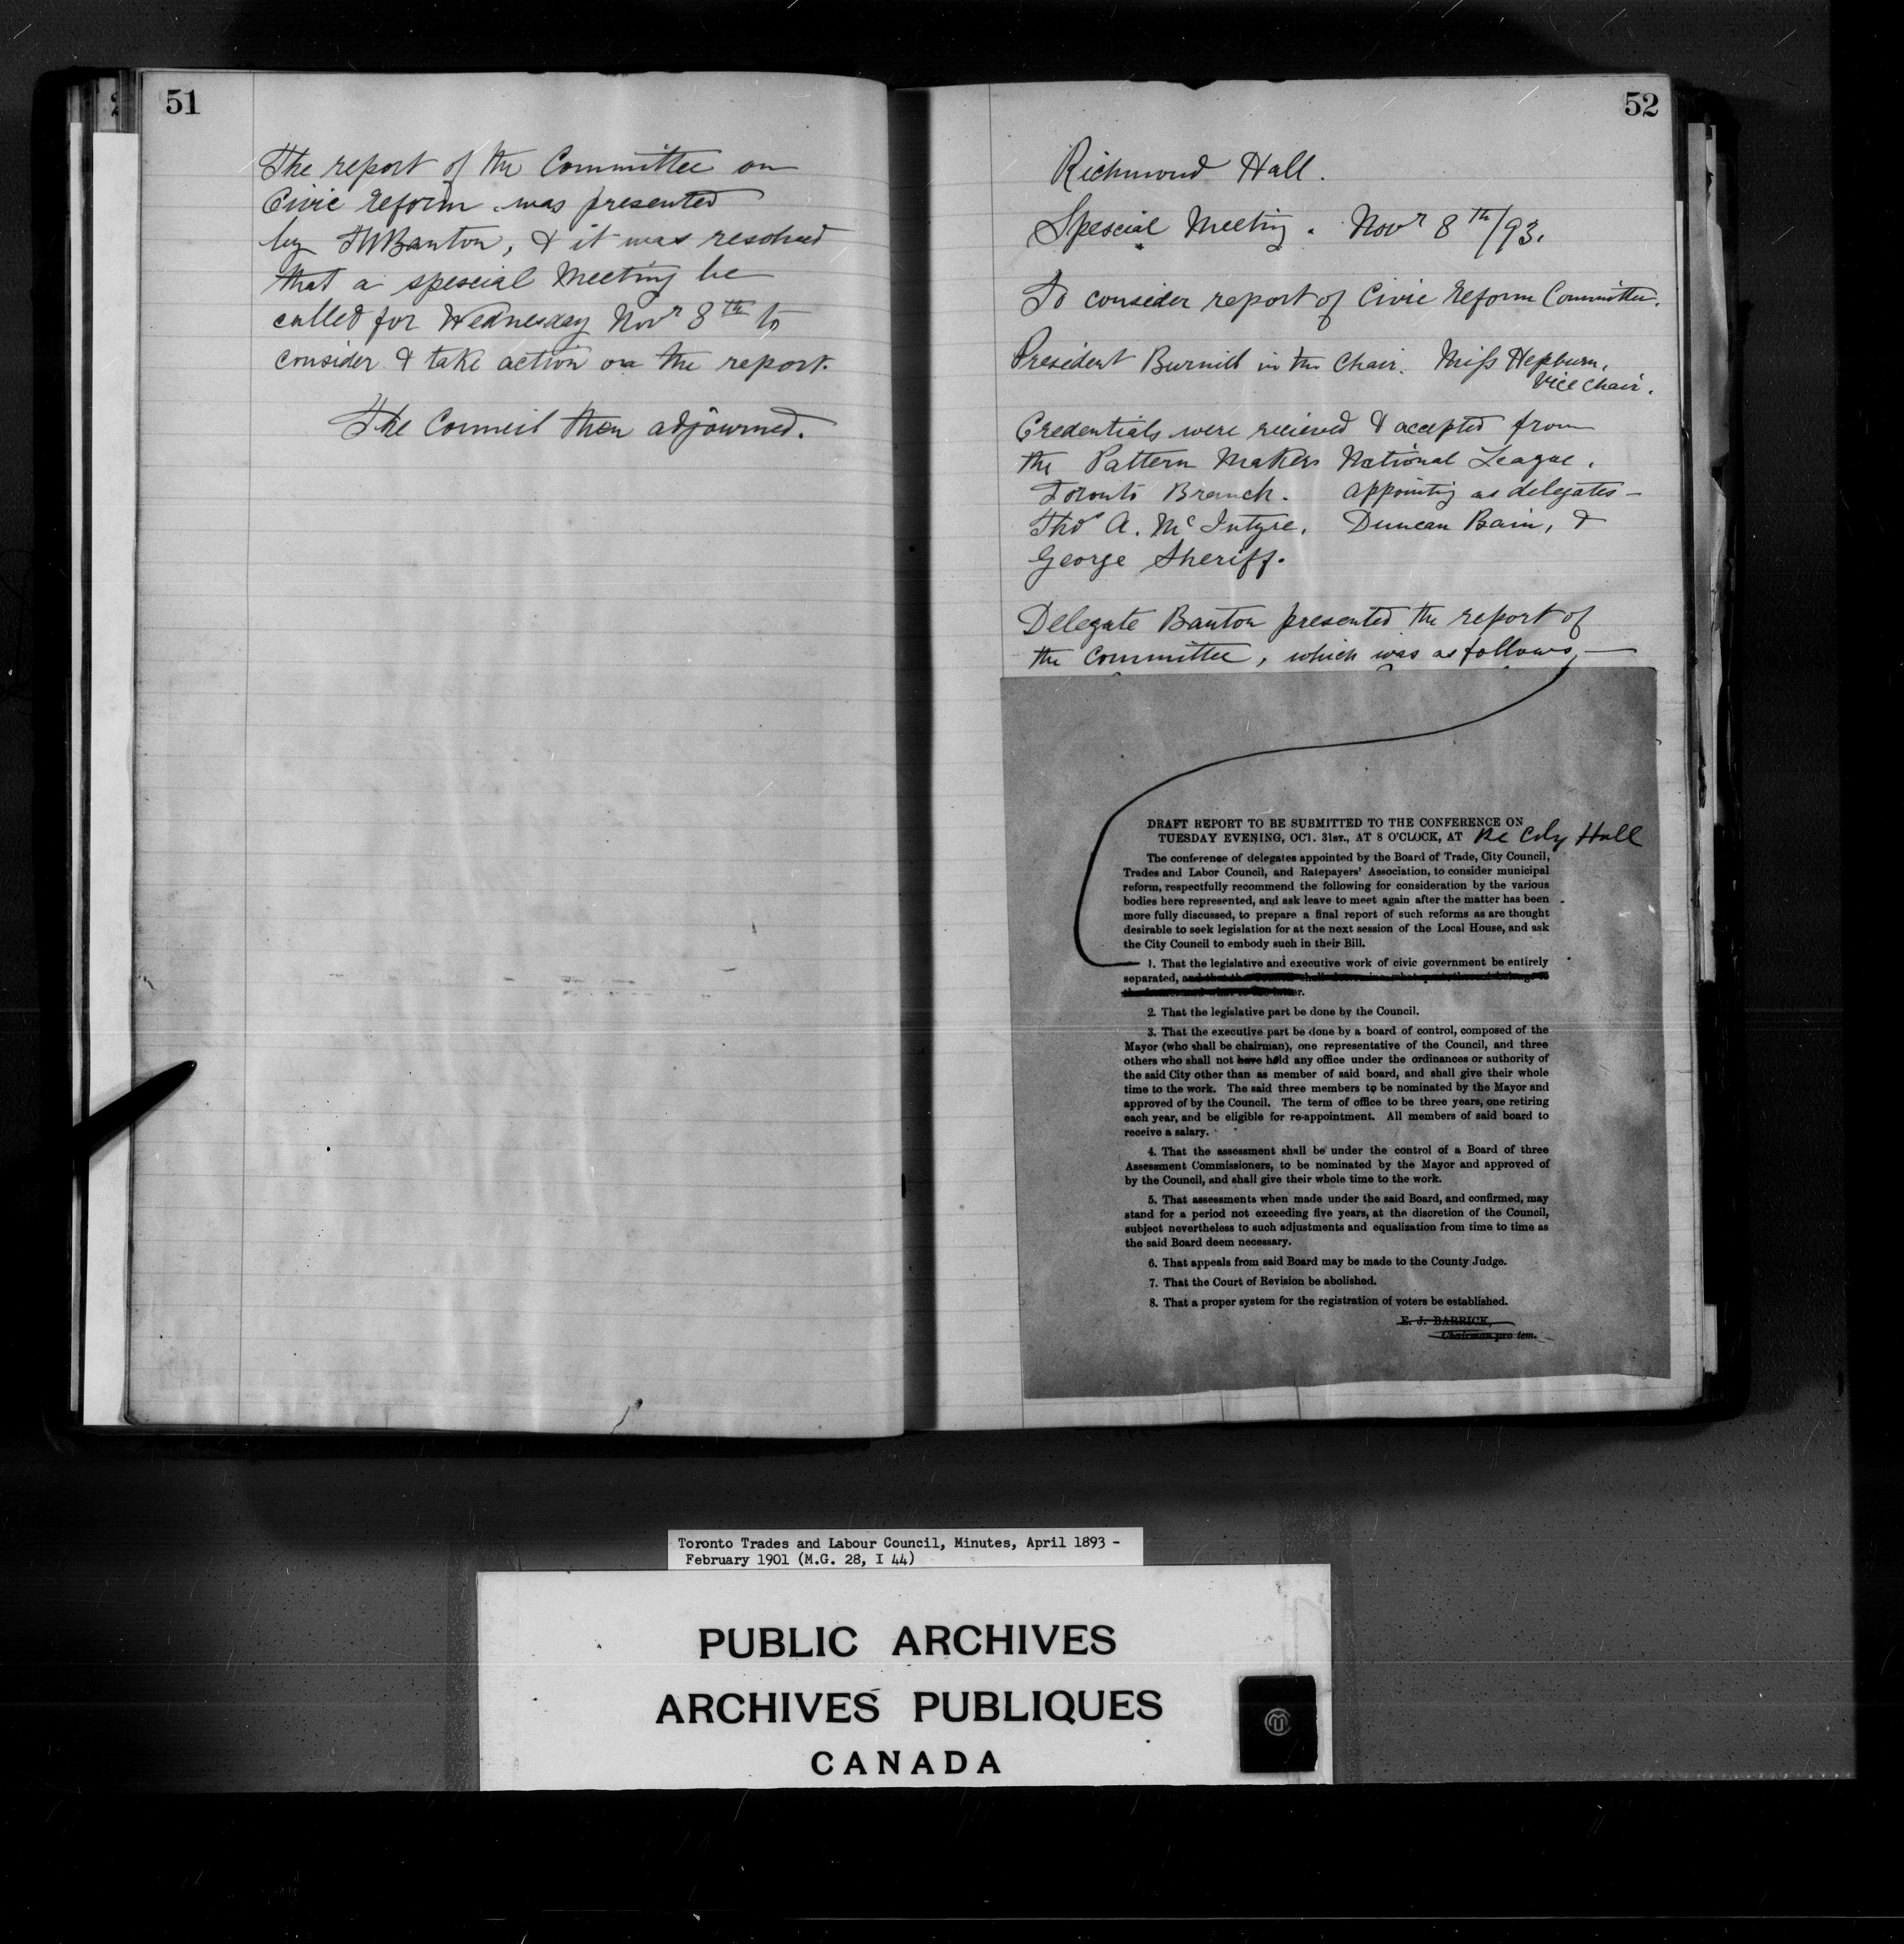 51
The report of the Committee on
Civic Reform was presented
by TW Banton, & it was resolved
that a spescial Meeting be
called for Wednesday Novr 8th to
consider & take action on the report.
The Council then adjourned.
52
Richmond Hall.
Spescial Meeting. Novr 8th/93.
To consider report of Civic Reform Committee.
President Burnill in the Chair. Miss Hepburn,
Vice Chair.
Credentials were recieved & accepted from
the Pattern Makers National League,
Toronto Branch. appointing as delegates —
Thos A. McIntyre, Duncan Bain, &
George Sheriff.
Delegate Banton presented the report of
the Committee, which was as follows, —
DRAFT REPORT TO BE SUBMITTED TO THE CONFERENCE ON
TUESDAY EVENING, OCT. 31ST., AT 8 O'CLOCK, AT the City Hall
The conference of delegates appointed by the Board of Trade, City Council,
Trades and Labor Council, and Ratepayers' Association, to consider municipal
reform, respectfully recommend the following for consideration by the various
bodies here represented, and ask leave to meet again after the matter has been
more fully discussed, to prepare a final report of such reforms as are thought
desirable to seek legislation for at the next session of the Local House, and ask
the City Council to embody such in their Bill.
1. That the legislative and executive work of civic government be entirely
separated,
2. That the legislative part be done by the Council.
3. That the executive part be done by a board of control, composed of the
Mayor (who shall be chairman), one representative of the Council, and three
others who shall not have hold any office under the ordinances or authority of
the said City other than as member of said board, and shall give their whole
time to the work. The said three members to be nominated by the Mayor and
approved of by the Council. The term of office to be three years, one retiring
each year, and be eligible for re-appointment. All members of said board to
receive a salary.
4. That the assessment shall be under the control of a Board of three
Assessment Commissioners, to be nominated by the Mayor and approved of
by the Council, and shall give their whole time to the work.
5. That assessments when made under the said Board, and confirmed, may
stand for a period not exceeding five years, at the discretion of the Council,
subject nevertheless to such adjustments and equalization from time to time as
the said Board deem necessary.
6. That appeals from said Board may be made to the County Judge.
7. That the Court of Revision be abolished.
8. That a proper system for the registration of voters be established.
E. J. BARRICK,
Chairman pro tem.
Toronto Trades and Labour Council, Minutes, April 1893 -
February 1901 (M.G. 28, I 44)
PUBLIC ARCHIVES
ARCHIVES PUBLIQUES
CANADA